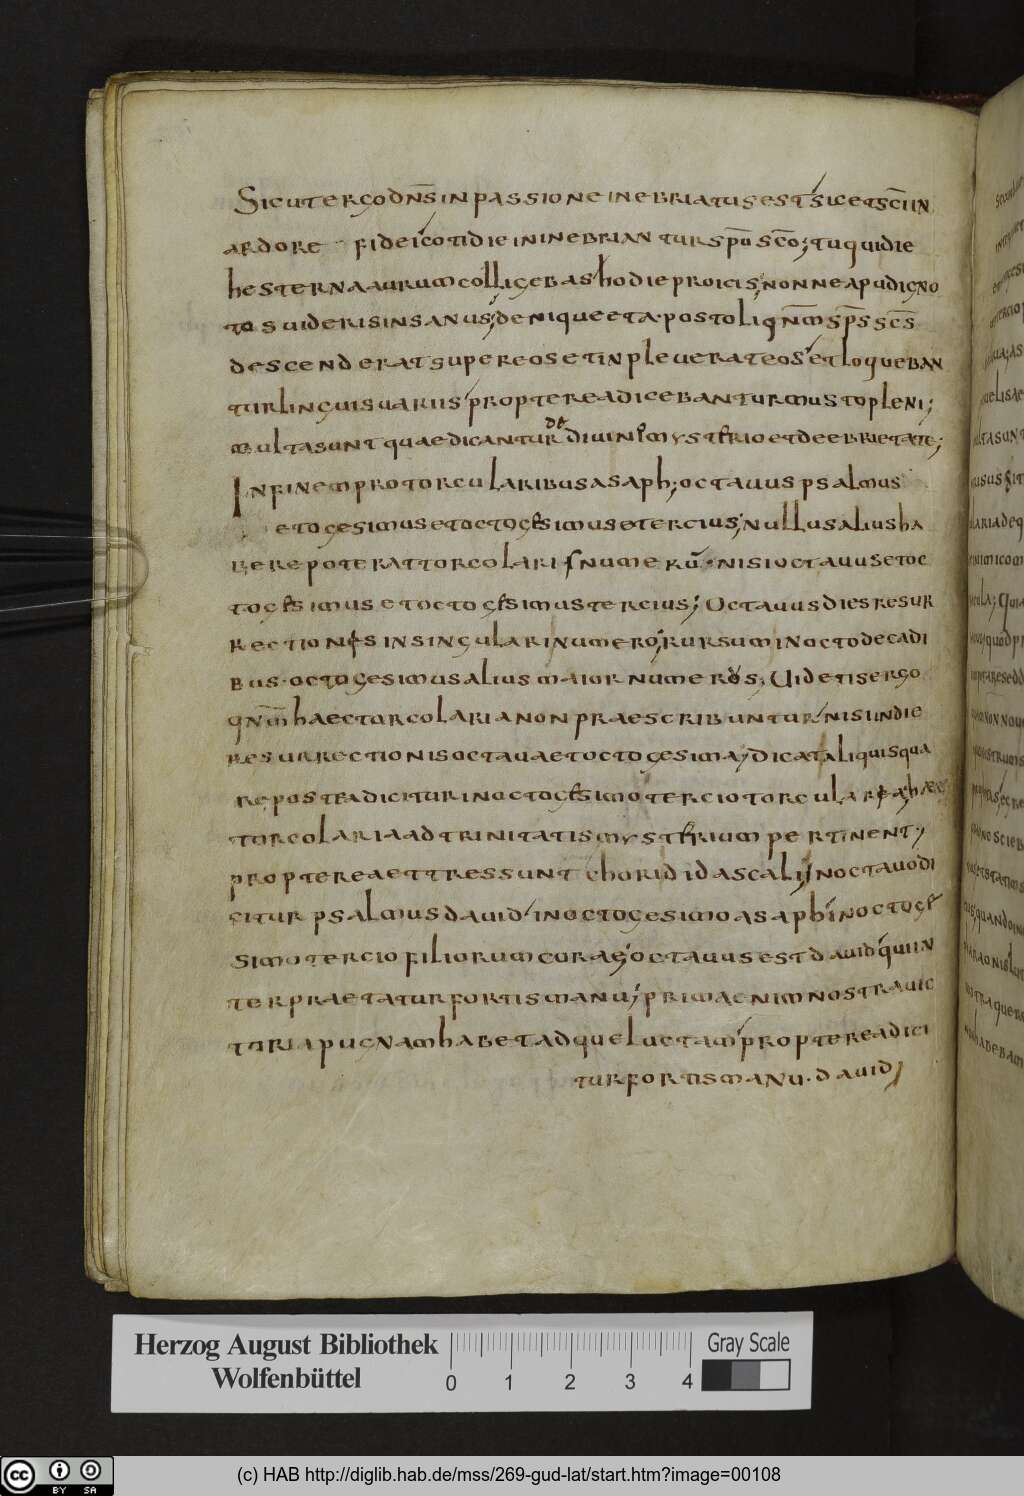 Sicut ergo dn̄s inpassione inebriatus est sic et sc̄i in
ardore fidei cotidie ininebriantur sp̄u sc̄o; tu qui die
hesterna aurum colligebas hodie proicis; non ne apud igno
tos uideris insanus; denique et apostoli qn̄m sp̄s sc̄s
descenderat super eos et inpleuerat eos et loqueban
tur linguis uariis propterea dicebantur musto pleni;
multa sunt quae dicantur de diuini mysterio et de ebrietate;
In finem pro torcularibus asaph; octauus psalmus
et ogesimus et octogesimus et ercius; nullus alius ha
bere poterat torcolaris numerū nisi octauus et oc
togesimus et octogesimus tercius; Octauus dies resur
rectionis in singulari numero; rursum in octo decadi
bus octogesimus alius maior numerus; Uidetis ergo
qn̄m haec torcolaria non praescribuntur nisi in die
resurrectionis octaua et octogesima; dicat aliquis qua
re postea dicitur in octogesimo tercio torcularia; haec
torcolaria ad trinitatis mysterium pertinent;
propterea et tres sunt chori didascali; In octauo di
citur psalmus dauid in octogesimo asaph in octoge
simo tercio filiorum corae; octauus est dauid qui in
terpraetatur fortis manu; primae nim nostra uic
toria pugnam habet adque luctam propterea dici
tur fortis manu. dauid;
Herzog August Bibliothek
Wolfenbüttel
0 1 2 3 4
Gray Scale
cc BY SA
(c) HAB http://diglib.hab.de/mss/269-gud-lat/start.htm?image=00108